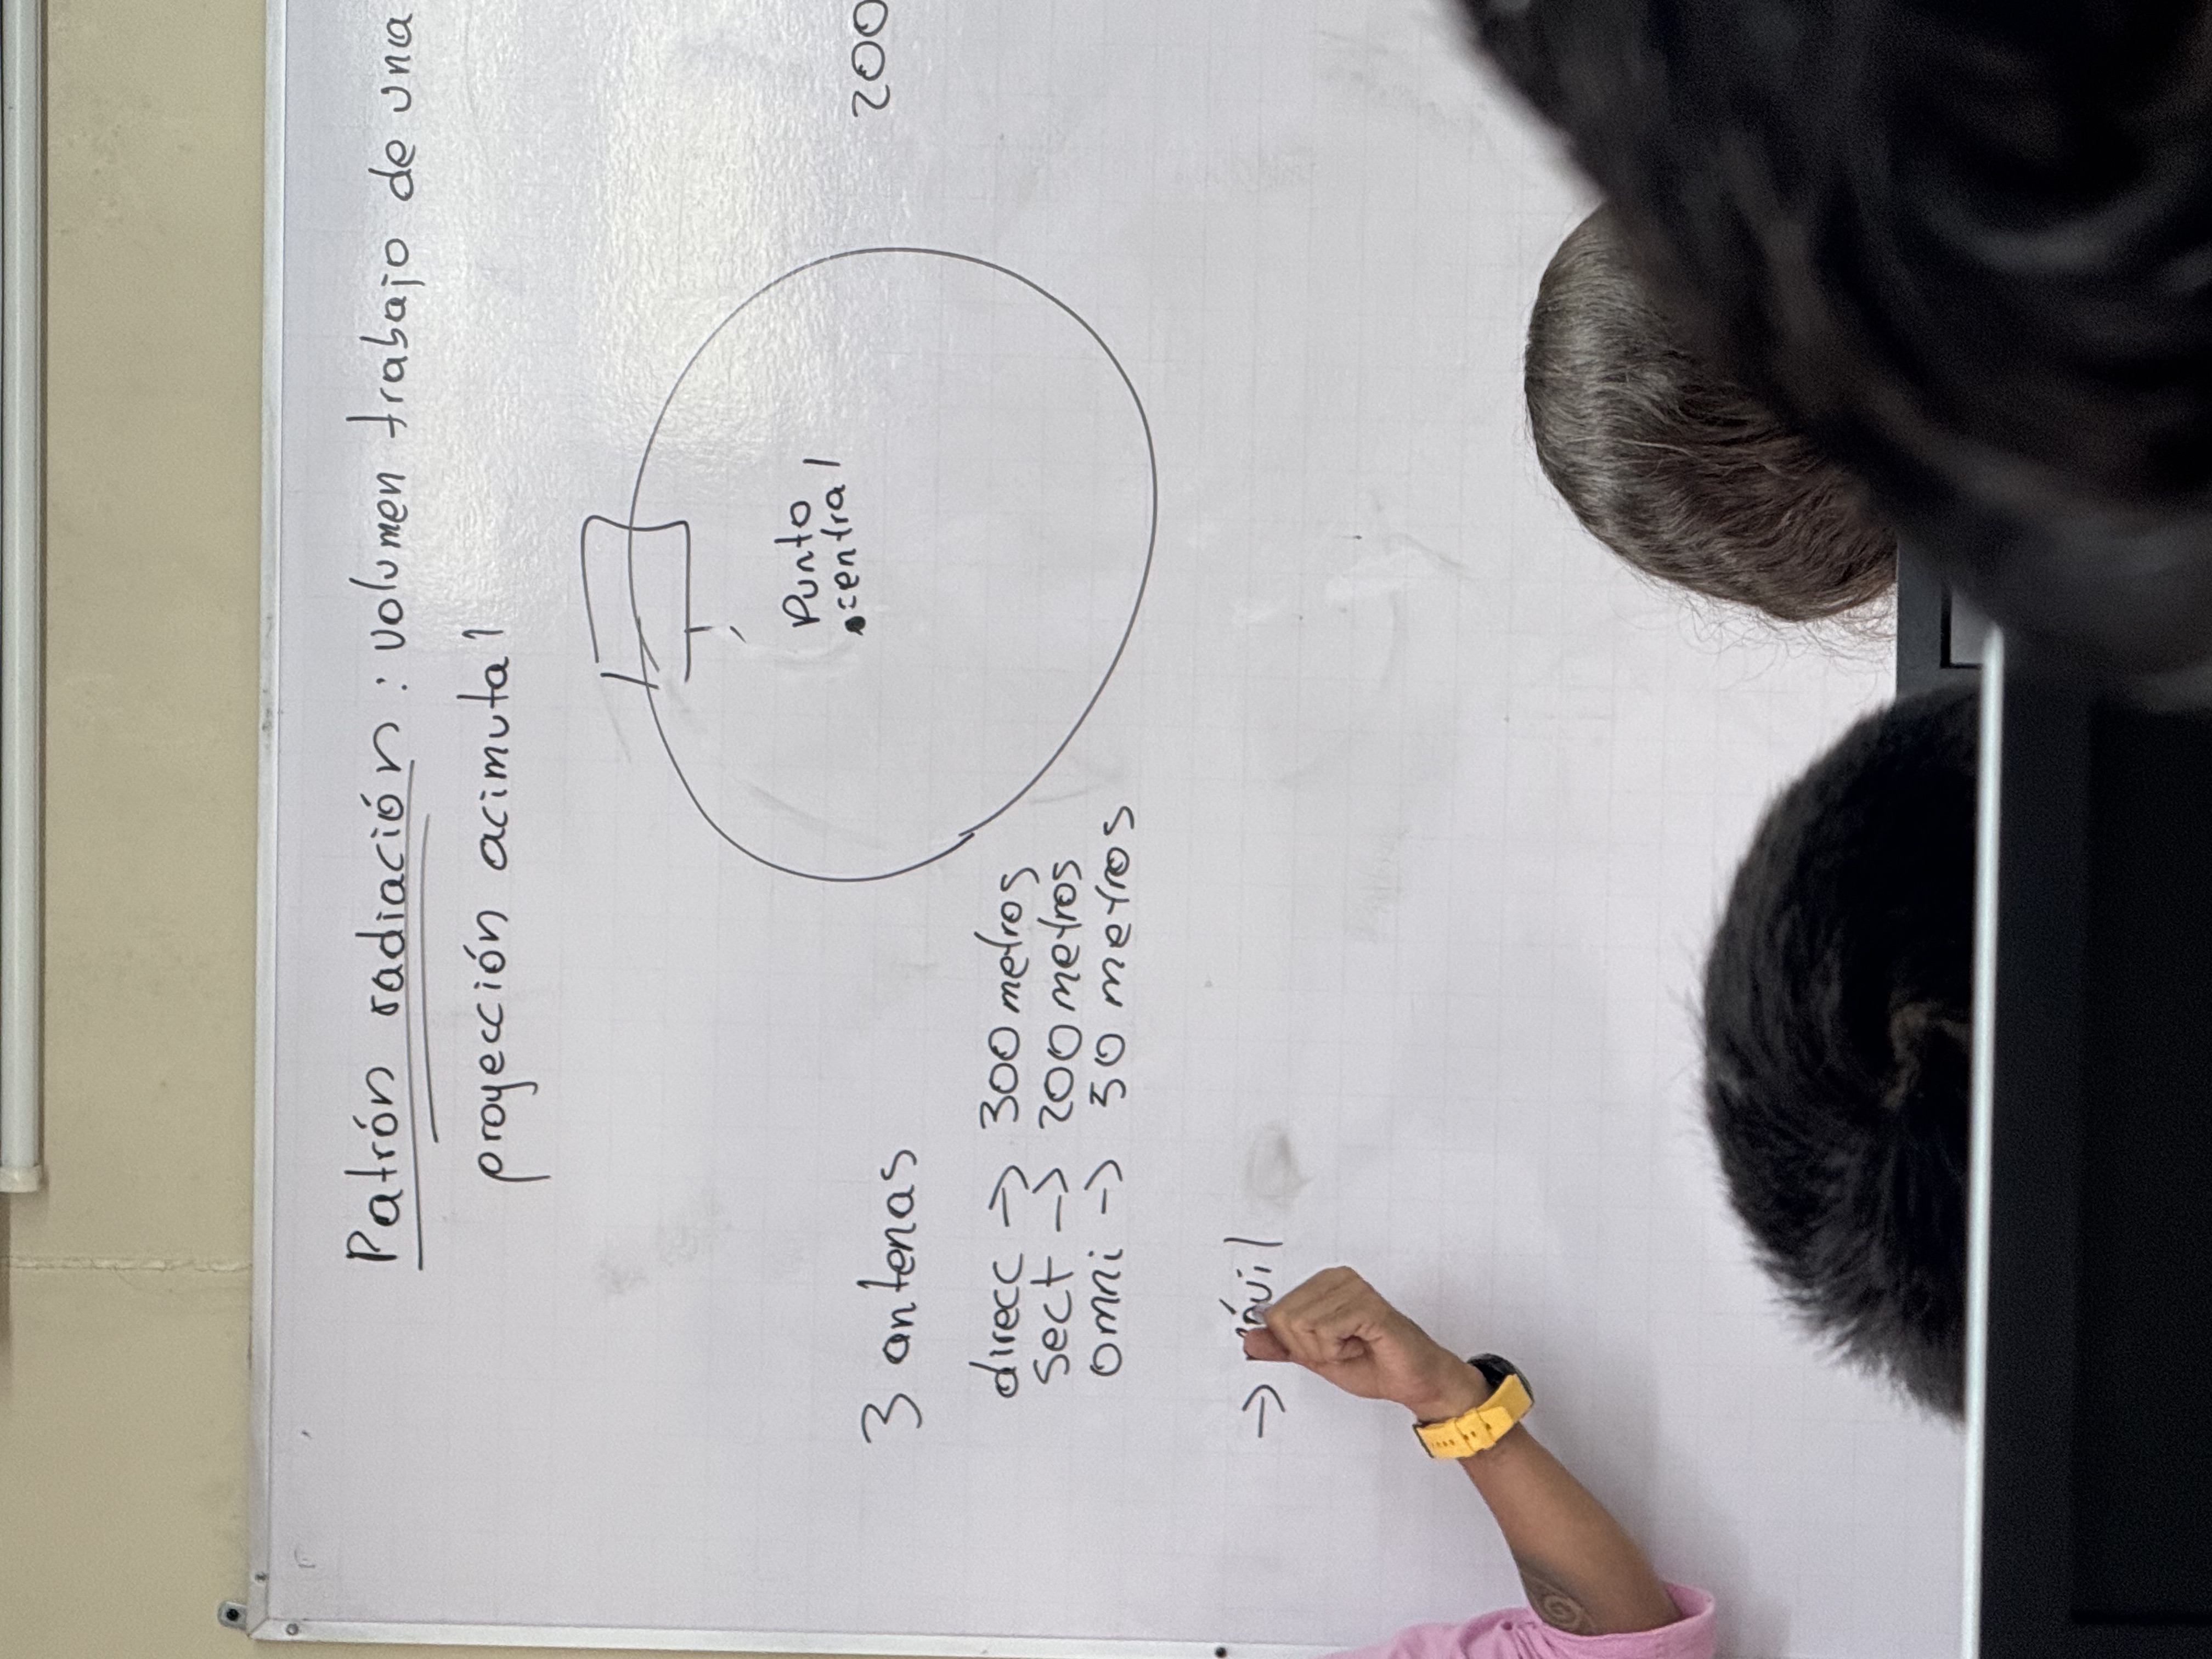 Patrón radiación: volumen trabajo de una
proyección acimutal
Punto
central
200
3 antenas
direcc -> 300 metros
sect -> 200 metros
omni -> 50 metros
-> móvil